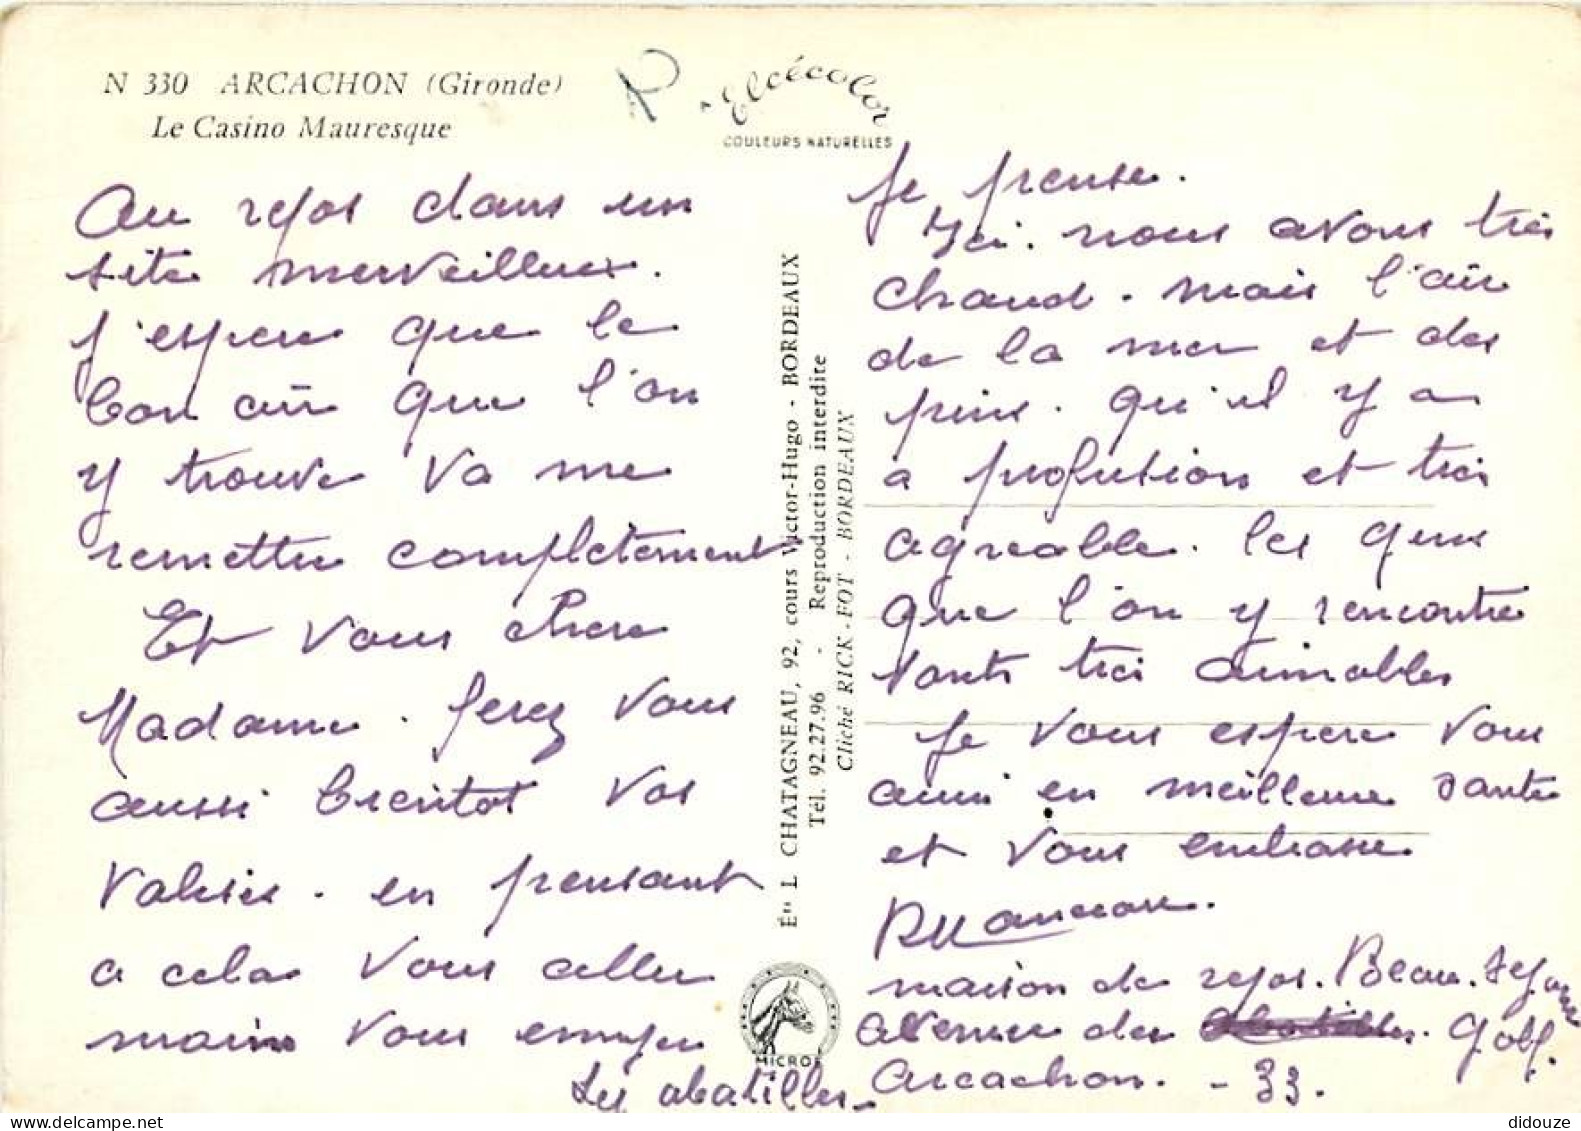 N 330 ARCACHON (Gironde)
Le Casino Mauresque
Elcécolor
COULEURS NATURELLES
Au repos dans un
site merveilleux.
j'espere que le
bon air que l'on
y trouve va me
remettre completement
Et vous chere
Madame. ferez vous
aussi bientot vos
valises. en pensant
a cela vous aller
moins vous ennuyer
Les abatilles
Ets L CHATAGNEAU, 92, cours Victor-Hugo - BORDEAUX
Tél. 92.27.96 - Reproduction interdite
Cliché RICK-FOT - BORDEAUX
MICROF
Je pense.
Ici. nous avons tres
chaud. mais l'air
de la mer et des
pins. qu'il y a
a profusion et tres
agreable. les gens
que l'on y rencontre
sont tres aimables
Je vous espere vous
aussi en meilleure sante
et vous embrasse
maison de repos. Beau. Sejour
avenue du Golf.
Arcachon. - 33.
didouze